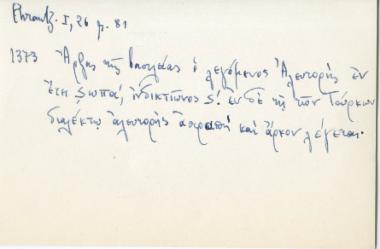 Phrantz. I, 26 p. 81
1373 Ἄρξης τῆς βασιλείας ὁ λεγόμενος Ἀλευτορῆς ἐν
ἔτει ϛωπα', ἰνδικτιῶνος ϛ'. ἐν δὲ τῇ τῶν Τούρκων
διαλέκτῳ ἀλευτορῆς ἀστραπὴ καὶ ἄρκον λέγεται.